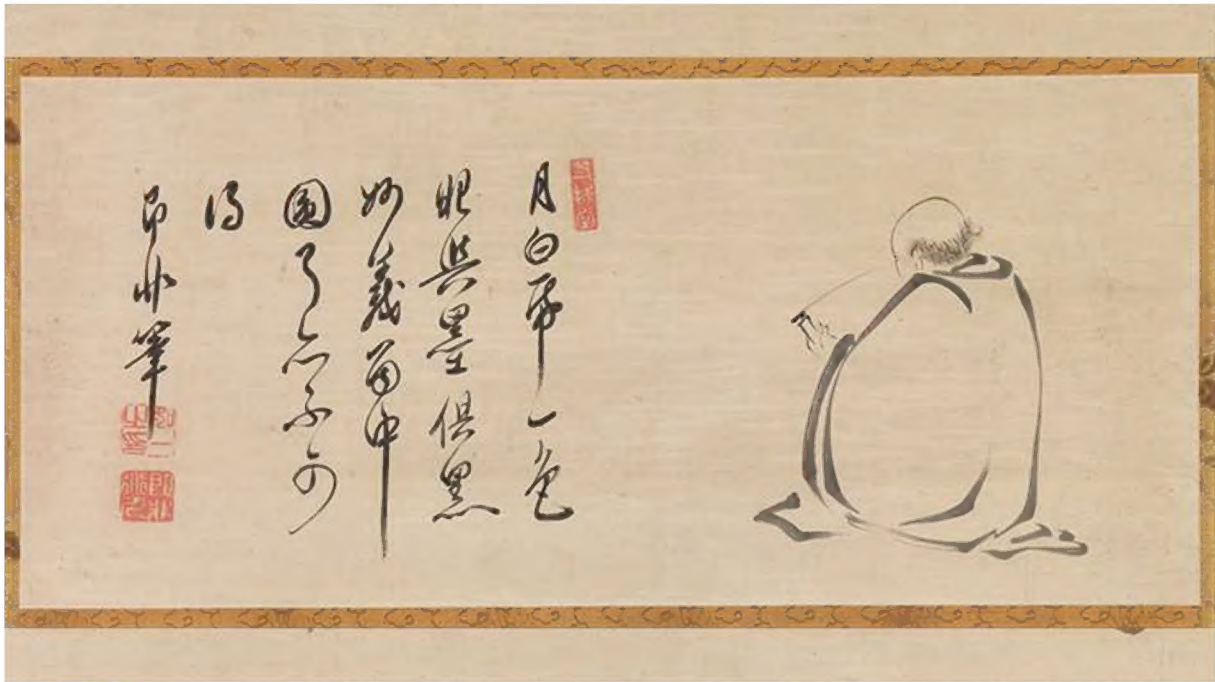 月白帋一色
眼與墨俱黑
妙義箇中
圓了不可
得
即非筆